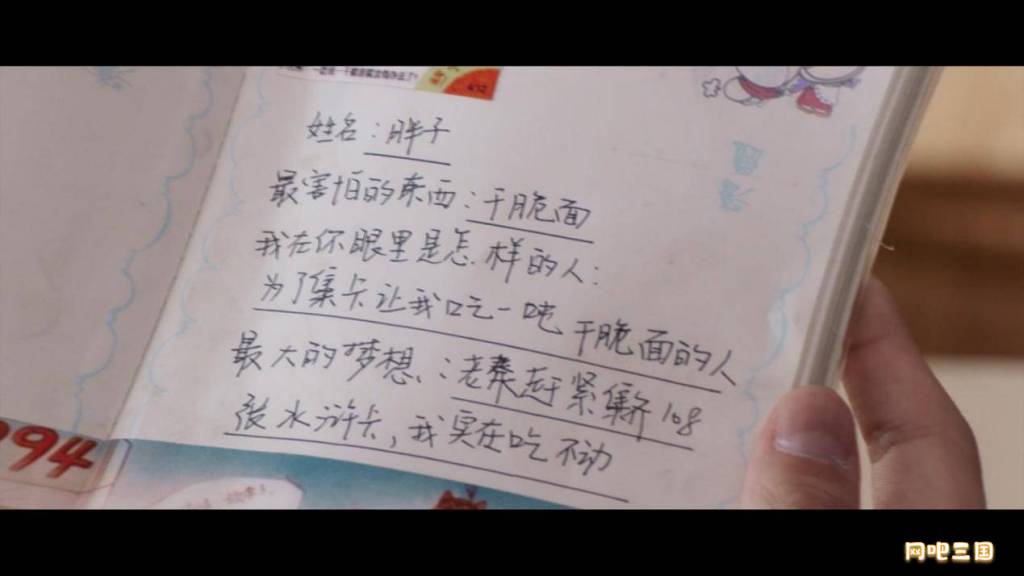 姓名：胖子
最害怕的东西：干脆面
我在你眼里是怎样的人：
为了集卡让我吃一吨干脆面的人
最大的梦想：老秦赶紧集齐108
张水浒卡，我实在吃不动
994
网吧三国